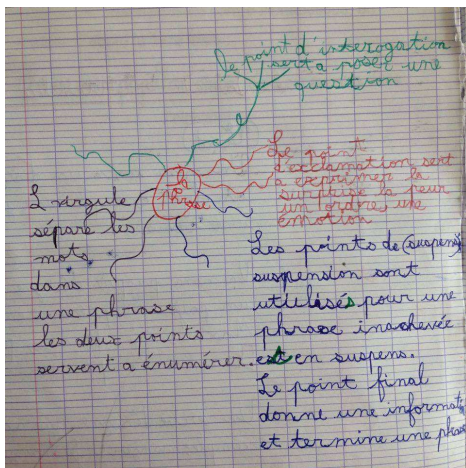 le point d'interogation
sert a poser une
question
Le point
d'exclamation sert
a exprimer la
surprise la peur
un ordre, une
émotion
La
phrase
L virgule
sépare les
mots
dans
une phrase
les deux points
servent a énumérer.
Les points de (suspens)
suspension sont
utilisés pour une
phrase inachevée
est en suspens.
Le point final
donne une informati
et termine une phras